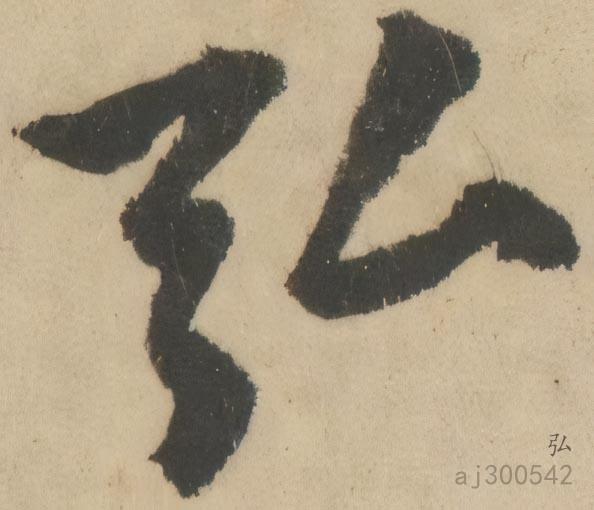 弘
弘
aj300542